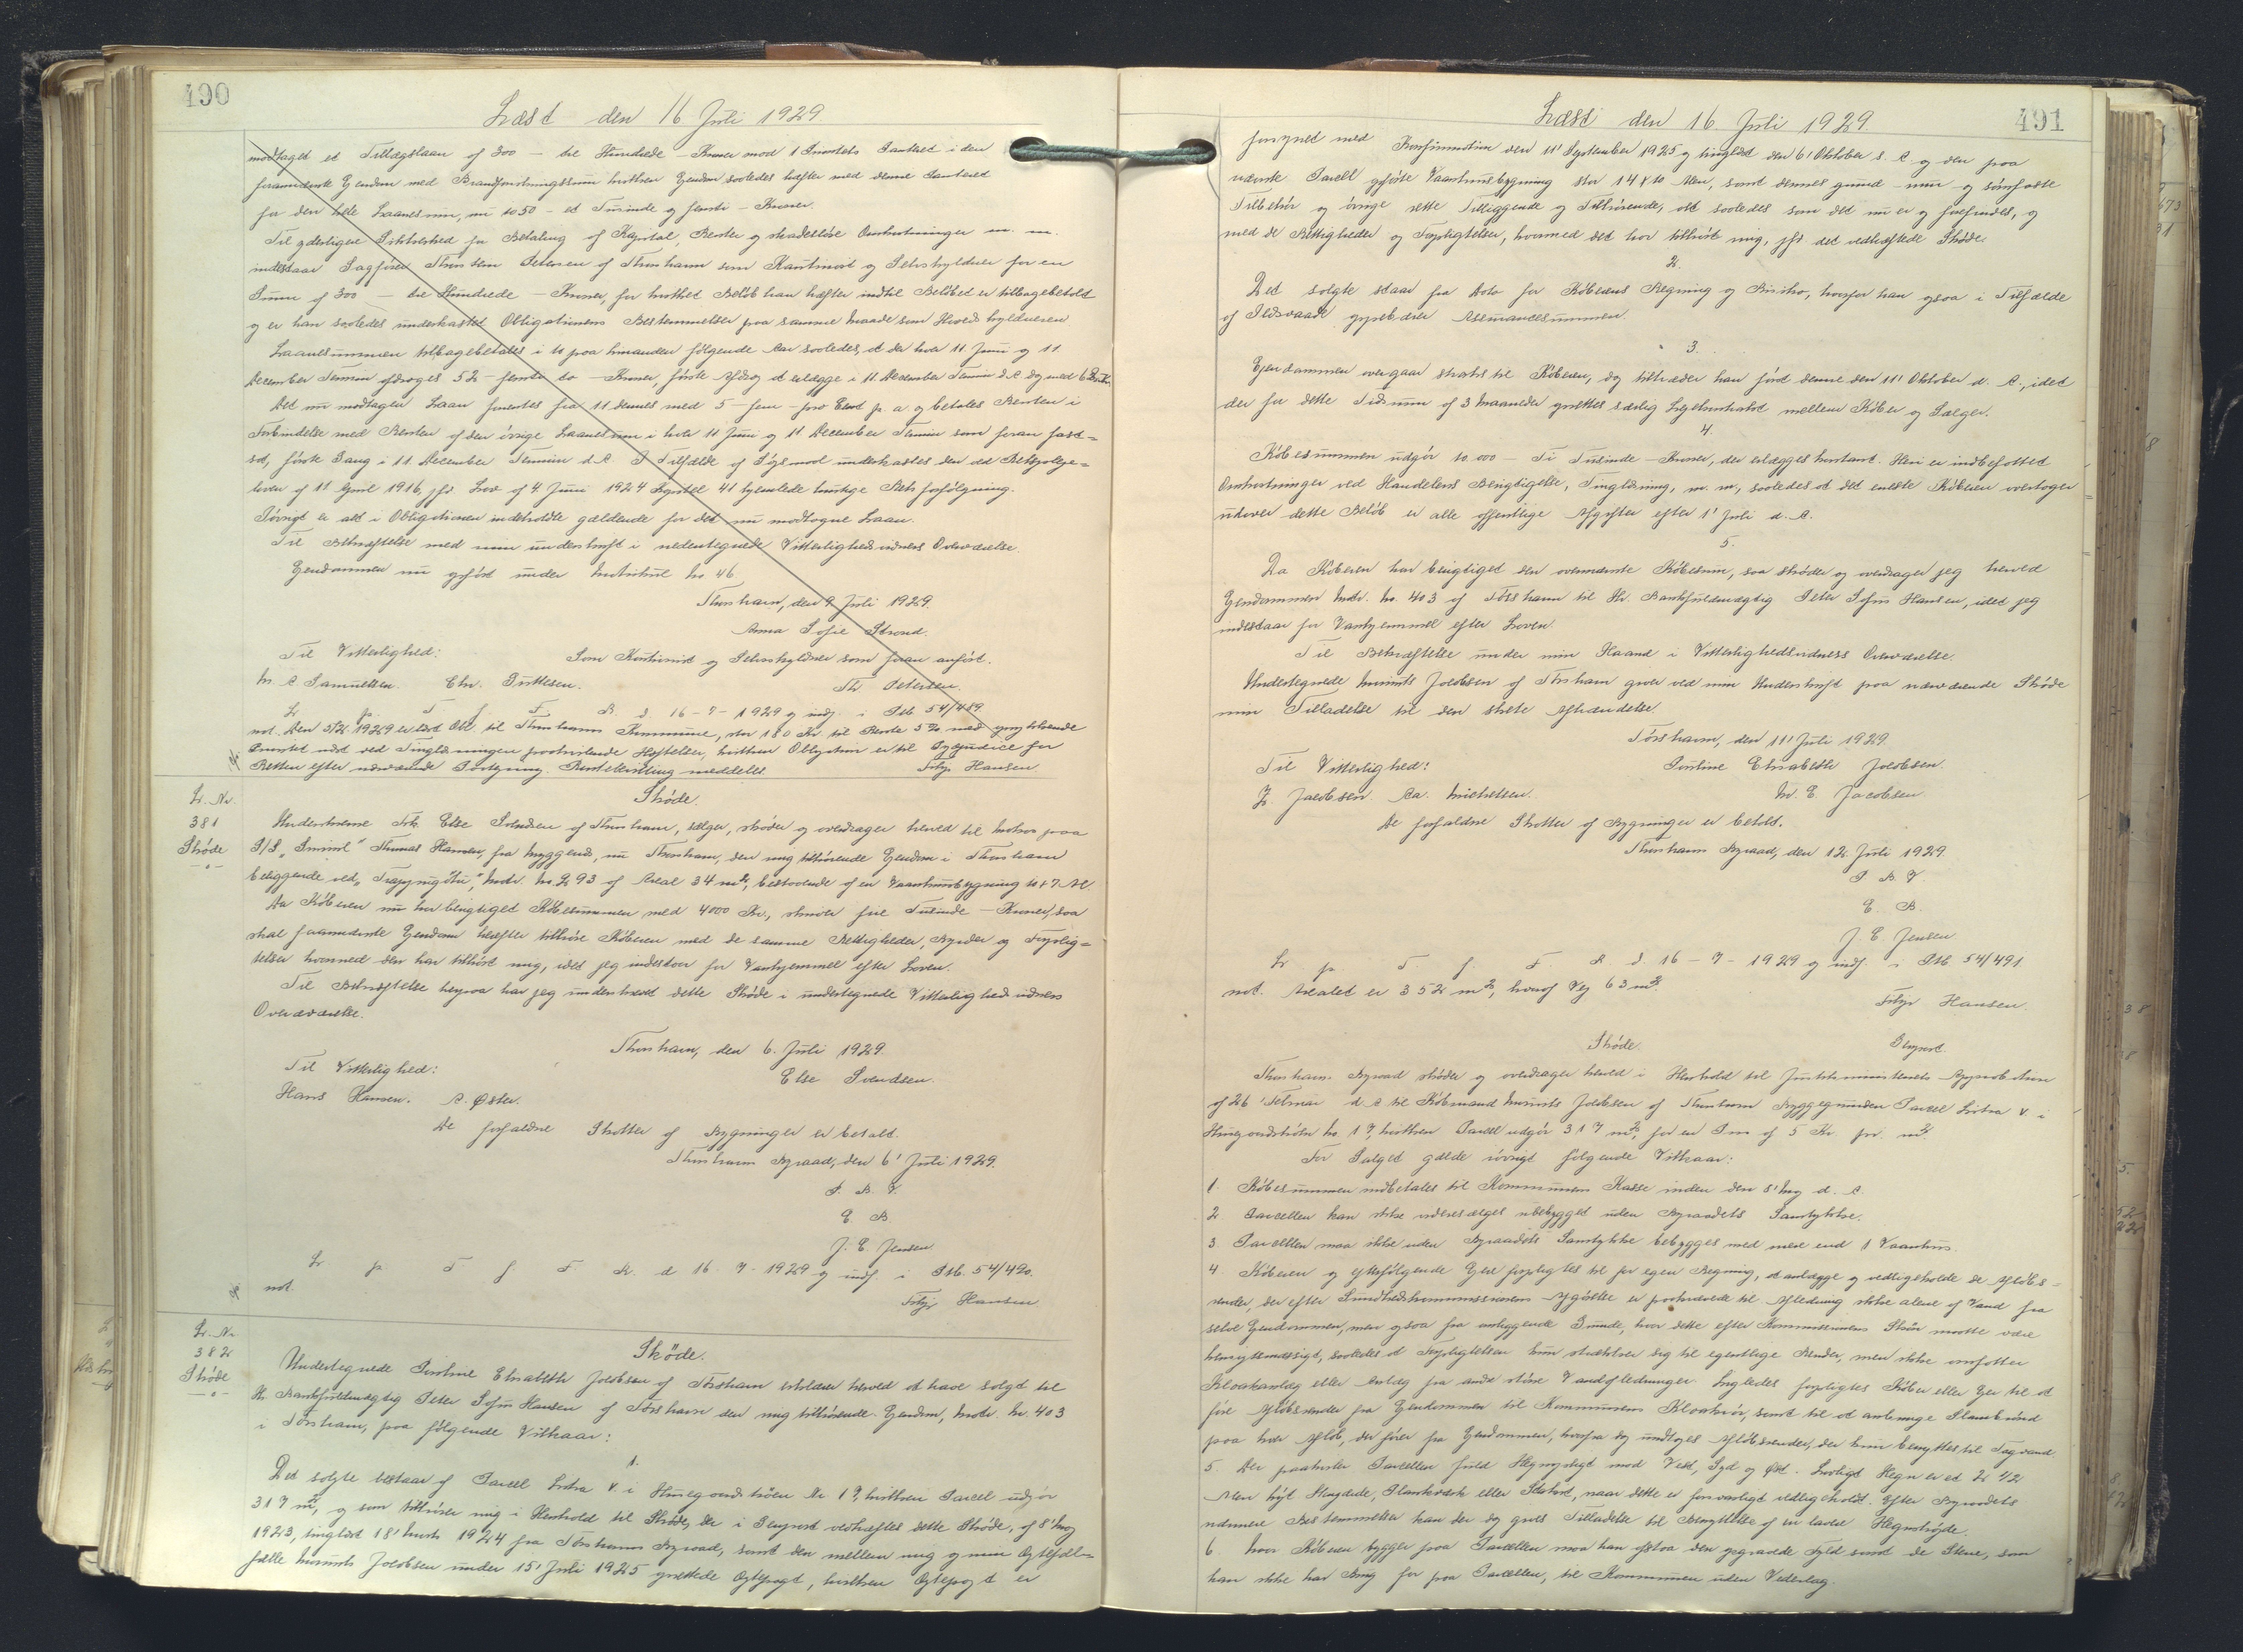 490
Læst den 16 Juli 1929
modtaget et Tillægslaan af 300 - tre Hundrede - Kroner mod 1 Prioritets Panteret i den
forannævnte Ejendom med Brandforsikringssum hvilken Ejendom saaledes hæfter med denne Panteret
for den hele Laanesum, nu 1050 - et Tusinde og femti - Kroner.
Til yderligere Sikkerhed for Betaling af Kapital, Renter og skadesløse Omkostninger m. m.
indestaar Sagfører Petersen af Thorshavn som Kautionist og Selvskyldner for en
Summa af 300 - tre Hundrede - Kroner, for hvilket Beløb han hæfter indtil Beløbet er tilbagebetalt
og er han saaledes underkastet Obligationens Bestemmelser paa samme Maade som Hovedskyldneren
Laanesummen tilbagebetales i 10 paa hinanden følgende Aar saaledes, at der hver 11 Juni og 11
December Termin afdrages 52 - femti to - Kroner, første Afdrag at erlægge i 11. December Termin d. A. dog med
Det nu modtagne Laan forrentes fra 11 dennes med 5 - fem - pro Cent p. a. og betales Renten i
Forbindelse med Renten af den øvrige Laanesum i hver 11 Juni og 11 December Termin som foran fast=
sat, første Gang i 11 December Termin d. A. I Tilfælde af Søgsmaal underkastes den ved Retsplejeloven
af 11' April 1916, jfr Lov af 4 Juni 1924 Kapitel 41 hjemlede hurtige Retsforfølgning.
Iøvrigt er alt i Obligationen indeholdte gældende for det nu modtagne Laan.
Til Bekræftelse med min underskrift i nedentegnede Vitterlighedsvidners Overværelse.
Ejendommen nu opført under Matrikul No 46
Thorshavn, den 9 Juli 1929.
Anna Sofie Strond.
Til Vitterlighed: Som Kautionist og Selvskyldner som foran anført.
M. A Samuelsen. Chr. Petersen.
L p. T. f. F. R. d. 16 - 7 - 1929 og indf. i Ptb 54/489
not. Den 5/2 1929 er læst Obl. til Thorshavns Kommune, stor 180 Kr. til Rente 5% med
Prioritet næst ved Tinglæsningen paahvilende Hæftelser, hvilken Obligation er til Præjudice for
Retten efter nærværende Paategning. Rentekvittering meddeles. Hansen
L. Nr.
381
Skøde
Skøde.
Underskrevne Frk. Else Svendsen af Thorshavn, sælger, skøder og overdrager herved til Matros paa
S/S "Smiril" Thomas Hansen, fra Nyggend, nu Thorshavn, den mig tilhørende Ejendom i Thorshavn
beliggende ved Matr. No. 293 af Areal 34 m2, bestaaende af en Vaanhusbygning 10 x 7 Al.
Da Køberen nu har berigtiget Købesummen med 4000 Kr., skriver fire Tusinde - Kroner, saa
skal forannævnte Ejendom herefter tilhøre Køberen med de samme Rettigheder, Byrder og Forplig=
telser hvormed den har tilhørt mig, idet jeg indestaar for Vanhjemmel efter Loven.
Til Bekræftelse herpaa har jeg underskrevet dette Skøde i undertegnede Vitterlighedsvidners
Overværelse.
Thorshavn, den 6. Juli 1929.
Til Vitterlighed: Else Svendsen.
Hans Hansen. A. Øster.
De forfaldne Skatter af Bygninger er betalt.
Thorshavns Byraad, den 6' Juli 1929.
P. B. V.
E. B.
J. E. Jensen
L p T f F R. d 16 - 7 - 1929 og indf. i Ptb. 54/490.
not. Hansen
L. Nr.
382
Skøde
Skøde.
Undertegnede Pauline Elisabeth Jacobsen af Tórshavn erklærer herved at have solgt til
Hr. Bankfuldmægtig Peter Sofus Hansen af Tórshavn den mig tilhørende Ejendom, Matr. No. 403
i Tórshavn, paa følgende Vilkaar:
1.
Det solgte bestaar af Parcel Litra V. i Nr 17, hvilken Parcel udgør
317 m2, og som tilhører mig i Henhold til Skøde, der i Genpart vedhæftes dette Skøde, af 8' Maj
1923, tinglæst 18' Marts 1924 fra Tórshavns Byraad, samt den mellem mig og min Ægtefæl=
fælle Mourits Jacobsen under 15' Juli 1925 oprettede Ægtepagt, hvilken Ægtepagt er
491
Læst den 16 Juli 1929
forsynet med Konfirmation den 11' September 1925 og tinglæst den 6' Oktober s. A. og den paa
nævnte Parcel opførte Vaanhusbygning stor 14 x 10 Alen, samt dennes grund - mur - og sømfaste
Tilbehør og øvrige rette Tilliggende og Tilhørende, alt saaledes som det nu er og forefindes, og
med de Rettigheder og Forpligtelser, hvormed det har tilhørt mig, jfr det vedhæftede Skøde.
2.
Det solgte staar fra Dato for Køberens Regning og Risiko, hvorfor han ogsaa i Tilfælde
af Ildsvaade oppebærer Assurancesummen.
3.
Ejendommen overgaar straks til Køberen, dog tiltræder han først denne den 11' Oktober d. A., idet
der for dette Tidsrum af 3 Maaneder oprettes særlig Lejekontrakt mellem Køber og Sælger.
4.
Købesummen udgør 10.000 - Ti Tusinde - Kroner, der erlægges kontant. Heri er indbefattet
Omkostninger ved Handelens Berigtigelse, Tinglæsning, m. m., saaledes at det eneste Køberen overtager
udover dette Beløb er alle offentlige Afgifter efter 1' Juli d. A.
5.
Da Køberen har berigtiget den ovennævnte Købesum, saa skøder og overdrager jeg herved
Ejendommen Matr. No. 403 af Tórshavn til Hr. Bankfuldmægtig Peter Sofus Hansen, idet jeg
indestaar for Vanhjemmel efter Loven.
Til Bekræftelse under min Haand i Vitterlighedsvidners Overværelse.
Undertegnede Mourits Jacobsen af Thorshavn giver ved min Underskrift paa nærværende Skøde
min Tilladelse til den skete Afhændelse.
Tórshavn, den 11' Juli 1929.
Til Vitterlighed: Pauline Elisabeth Jacobsen.
Z. Jacobsen. Aa. Michelsen. M. E. Jacobsen.
De forfaldne Skatter af Bygninger er betalt.
Thorshavns Byraad, den 12. Juli 1929.
P. B. V.
E. B.
J. E. Jensen
L p. T. f. F. R. d. 16 - 7 - 1929 og indf. i Ptb 54/491
not. Arealet er 352 m2, hvoraf Vej 63 m2.
Hansen.
Skøde. Genpart.
Thorshavns Byraad skøder og overdrager herved i Henhold til Justitsministeriets Approbation
af 26' Februar d. A til Købmand Mourits Jacobsen af Thorshavn Byggegrunden Parcel Litra V. i
No. 17, hvilken Parcel udgør 317 m2, for en Pris af 5 Kr. pr. m2.
For Salget gælde iøvrigt følgende Vilkaar:
1. Købesummen indbetales til Kommunens Kasse inden den 8' Maj d. A.
2. Parcellen kan ikke videresælges ubebygget uden Byraadets Samtykke.
3. Parcellen maa ikke uden Byraadets Samtykke bebygges med mere end 1 Vaanhus.
4. Køberen og efterfølgende Ejere forpligtes til for egen Regning, at anlægge og vedligeholde de Afløbs=
render, der efter Sundhedskommissionens Afgørelse er paakrævede til Afledning ikke alene af Vand fra
selve Ejendommen, men ogsaa fra omliggende Grunde, hvor dette efter Kommissionens Skøn maatte være
hensigtsmæssigt, saaledes at Forpligtelsen kun strækker sig til egentlige Render, men ikke omfatter
Kloakanlæg eller Anlæg fra andre større Vandafledninger. Ligeledes forpligtes Køber eller Ejer til at
føre Afløbsrender fra Ejendommen til Kommunens Kloakrør, samt til at anbringe Slambrønd
paa hver Afløb, der fører fra Ejendommen, hvorfra dog undtages Afløbsrender, der kun benyttes til Tagvand.
5. Der paahviler Parcellen fuld Hegnspligt mod Vest, Syd og Øst. Lovligt Hegn er et 2 1/2
Alen højt Stengærde, Plankeværk eller Stakit, naar dette er forsvarligt vedligeholdt. Efter Byraadets
nærmere Bestemmelser kan der dog gives Tilladelse til Benyttelse af en lavere Hegnshøjde.
6. Hvor Køberen bygger paa Parcellen maa han afstaa den opgravede Fyld samt de Stene, som
han ikke har Brug for paa Parcellen, til Kommunen uden Vederlag.